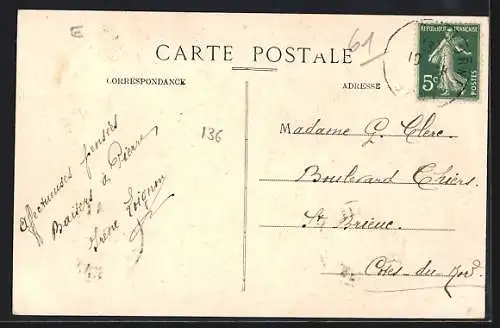 E
61
CARTE POSTALE
CORRESPONDANCE
ADRESSE
REPUBLIQUE FRANÇAISE
5c
POSTES
136
Affectueuses pensées
Baisers à Pierre
Irène
Madame G. Clerc.
Boulevard Thiers.
St Brieuc.
Cotes-du-Nord.